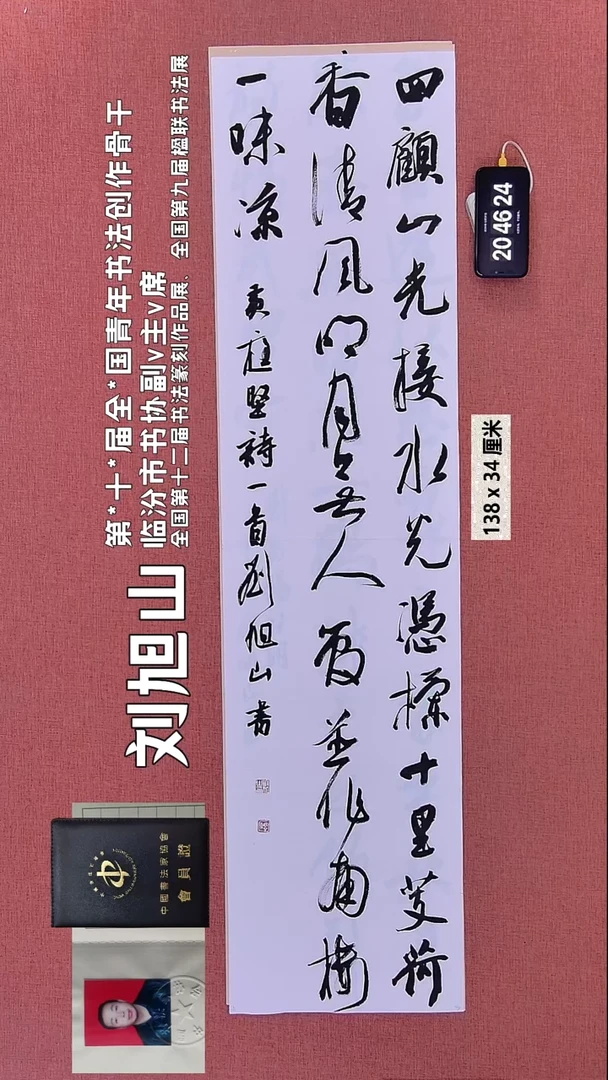 四顧山光接水光凭欄十里芰荷
香清風明月無人管並作南樓
一味凉 黄庭堅詩一首劉旭山書
第*十*届全*国青年书法创作骨干
临汾市书协副v主v席
全国第十二届书法篆刻作品展、全国第九届楹联书法展
刘旭山
20 46 24
138 x 34 厘米
中國書法家協會
會員證